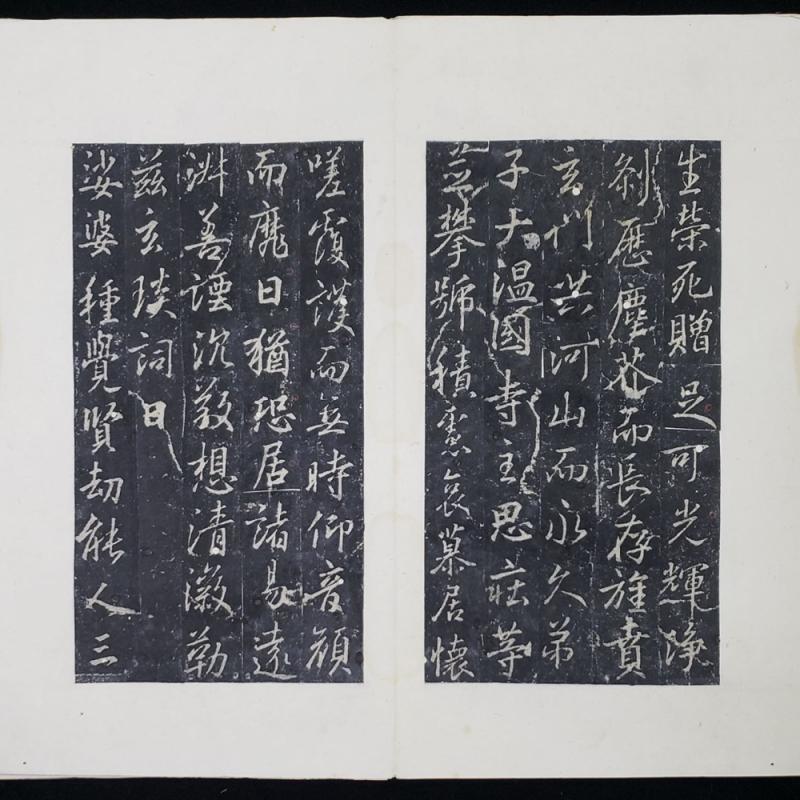 生榮死贈足可光輝淨
刹歷塵芥而長存旌賁
玄門共河山而永久弟
子大温國寺主思莊等
並攀號積慮哀慕居懷
嗟覆護而無時仰音顔
而靡日猶恐居諸易遠
淑善湮沉敬想清徽勒
兹玄琰詞曰
娑婆種覺賢劫能人三